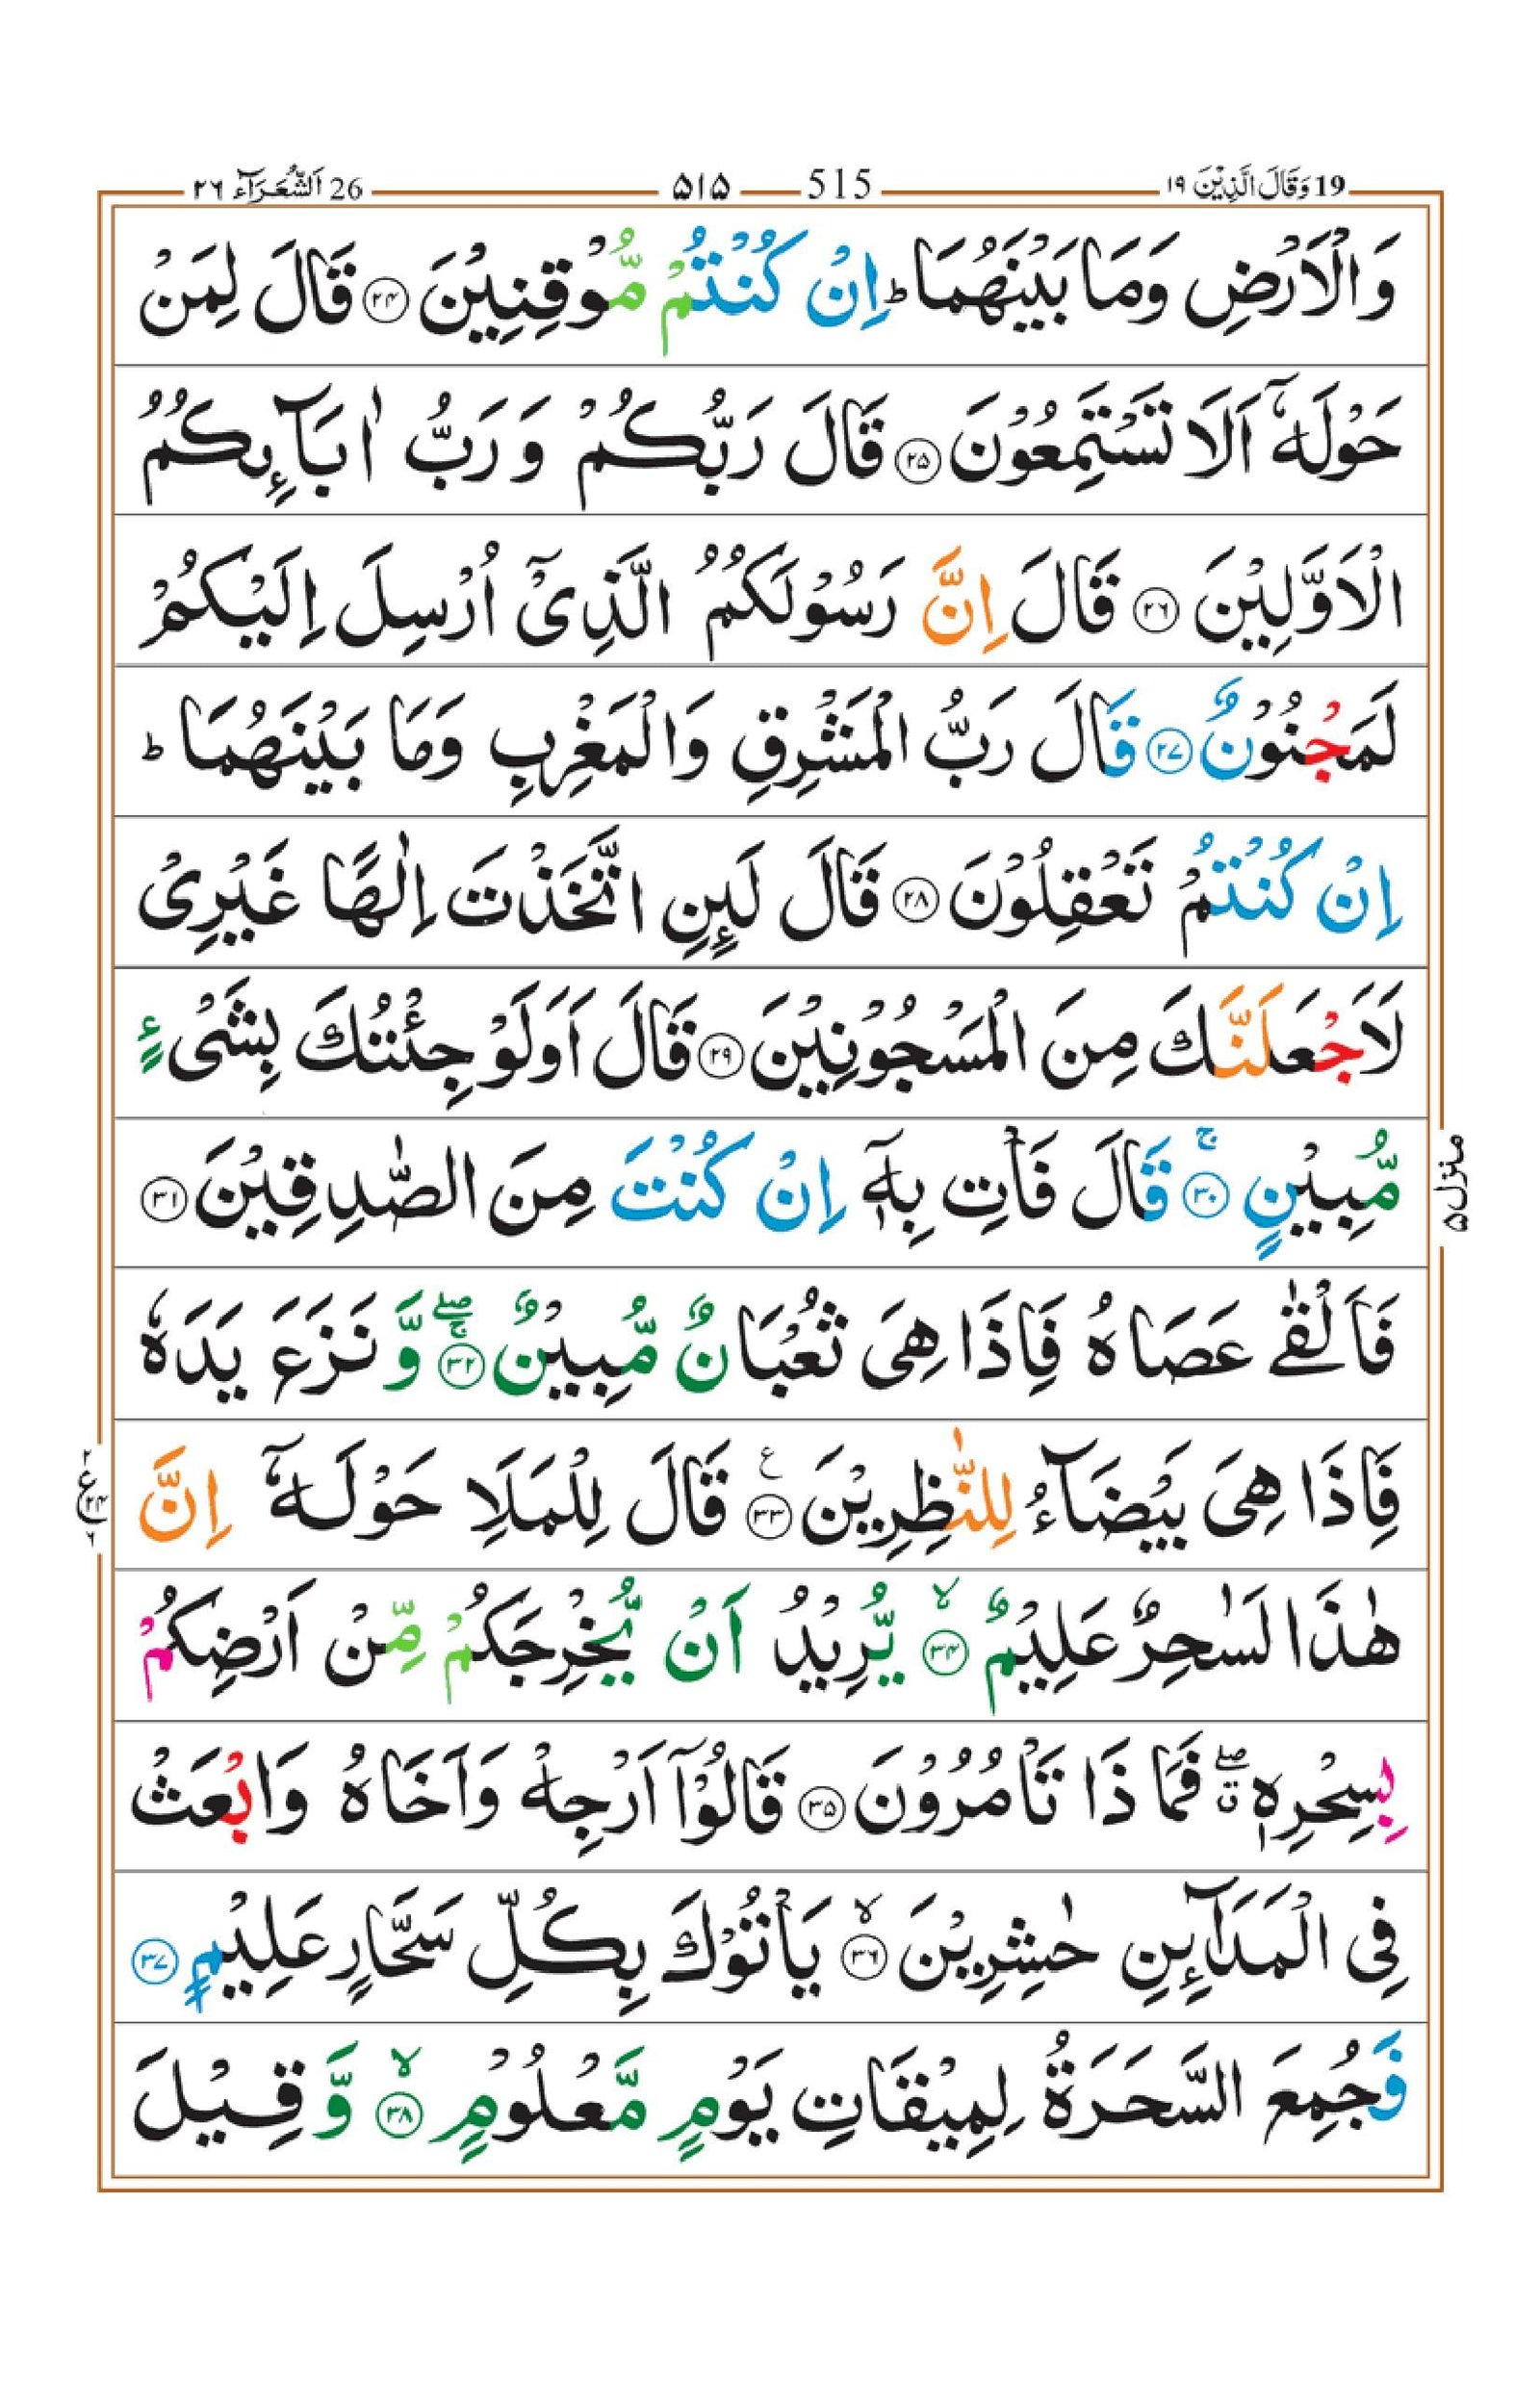 19 وَقَالَ الَّذِيْنَ ١٩ 515 ۵۱۵ 26 اَلشُّعَرَآء ٢٦
وَالْاَرْضِ وَمَا بَيْنَهُمَا ؕ اِنْ كُنْتُمْ مُّوْقِنِيْنَ ۲۴ قَالَ لِمَنْ
حَوْلَهٗۤ اَلَا تَسْتَمِعُوْنَ ۲۵ قَالَ رَبُّكُمْ وَ رَبُّ اٰبَآئِكُمُ
الْاَوَّلِيْنَ ۲۶ قَالَ اِنَّ رَسُوْلَكُمُ الَّذِيْۤ اُرْسِلَ اِلَيْكُمْ
لَمَجْنُوْنٌ ۲۷ قَالَ رَبُّ الْمَشْرِقِ وَالْمَغْرِبِ وَمَا بَيْنَهُمَا ؕ
اِنْ كُنْتُمْ تَعْقِلُوْنَ ۲۸ قَالَ لَئِنِ اتَّخَذْتَ اِلٰهًا غَيْرِيْ
لَاَجْعَلَنَّكَ مِنَ الْمَسْجُوْنِيْنَ ۲۹ قَالَ اَوَلَوْ جِئْتُكَ بِشَيْءٍ
مُّبِيْنٍ ۚ ۳۰ قَالَ فَاْتِ بِهٖۤ اِنْ كُنْتَ مِنَ الصّٰدِقِيْنَ ۳۱
فَاَلْقٰى عَصَاهُ فَاِذَا هِيَ ثُعْبَانٌ مُّبِيْنٌ ۚۖ ۳۲ وَّ نَزَعَ يَدَهٗ
فَاِذَا هِيَ بَيْضَآءُ لِلنّٰظِرِيْنَ ع ۳۳ قَالَ لِلْمَلَاِ حَوْلَهٗۤ اِنَّ
هٰذَا لَسٰحِرٌ عَلِيْمٌ ۙ ۳۴ يُّرِيْدُ اَنْ يُّخْرِجَكُمْ مِّنْ اَرْضِكُمْ
بِسِحْرِهٖ ۖق فَمَا ذَا تَاْمُرُوْنَ ۳۵ قَالُوْۤا اَرْجِهْ وَاَخَاهُ وَابْعَثْ
فِي الْمَدَآئِنِ حٰشِرِيْنَ ۙ ۳۶ يَاْتُوْكَ بِكُلِّ سَحَّارٍ عَلِيْمٍ ۳۷
فَجُمِعَ السَّحَرَةُ لِمِيْقَاتِ يَوْمٍ مَّعْلُوْمٍ ۙ ۳۸ وَّ قِيْلَ
منزل ۵
۲ ع ۲۴ ۶